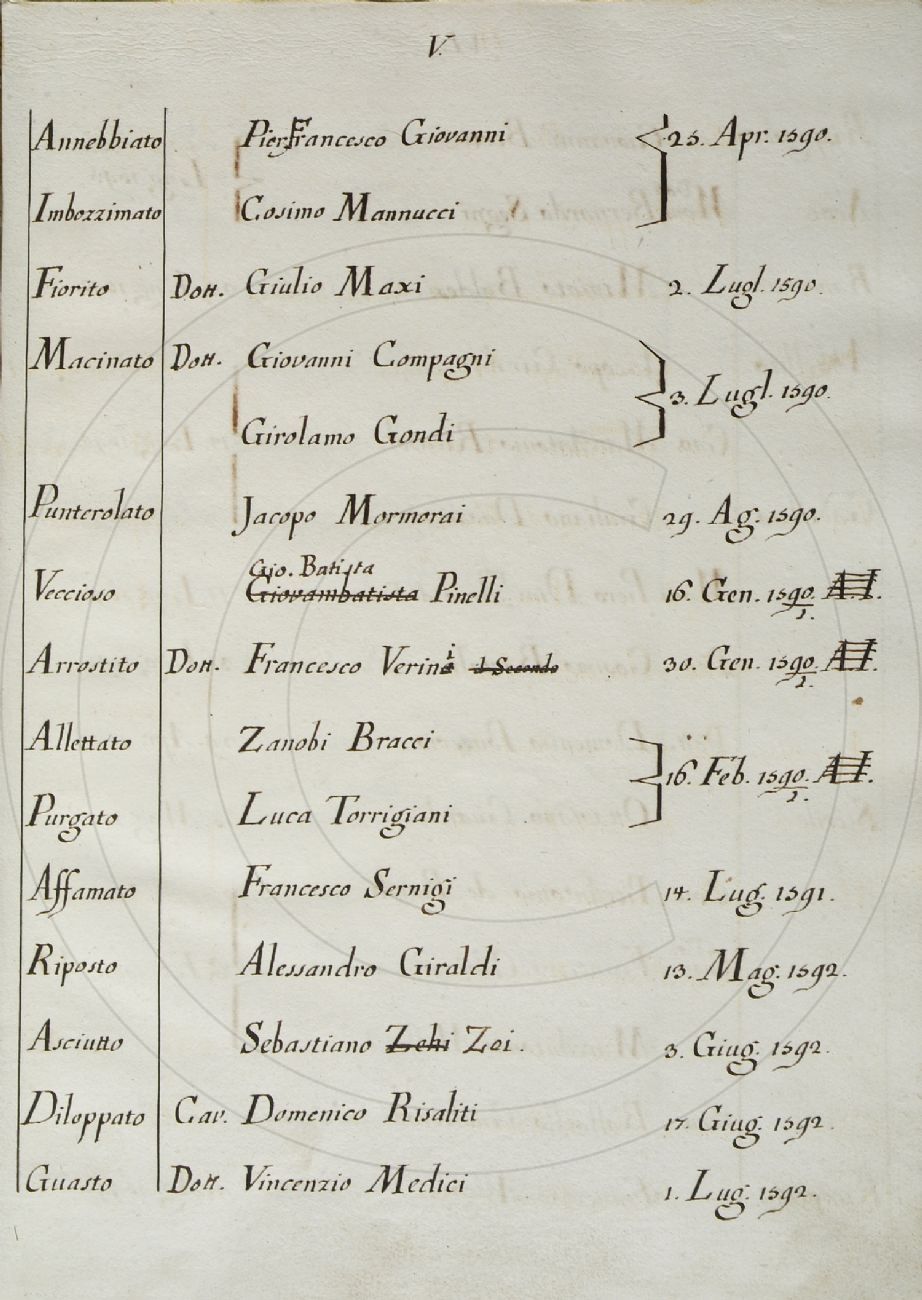 V.
Annebbiato Pierfrancesco Giovanni 25. Apr. 1590.
Imbozzimato Cosimo Mannucci
Fiorito Dott. Giulio Maxi 2. Lugl. 1590.
Macinato Dott. Giovanni Compagni
3. Lugl. 1590.
Girolamo Gondi
Punterolato Jacopo Mormorai 29. Ag. 1590.
Gio. Batista
Veccioso Giovambatista Pinelli 16. Gen. 1590/1.
Arrostito Dott. Francesco Verini il Secondo 30. Gen. 1590/1.
Allettato Zanobi Bracci
16. Feb. 1590/1.
Purgato Luca Torrigiani
Affamato Francesco Sernigi 14. Lug. 1591.
Riposto Alessandro Giraldi 13. Mag. 1592.
Asciutto Sebastiano Zehi Zoi. 3. Giug. 1592.
Diloppato Cav. Domenico Risaliti 17. Giug. 1592.
Guasto Dott. Vincenzio Medici 1. Lug. 1592.